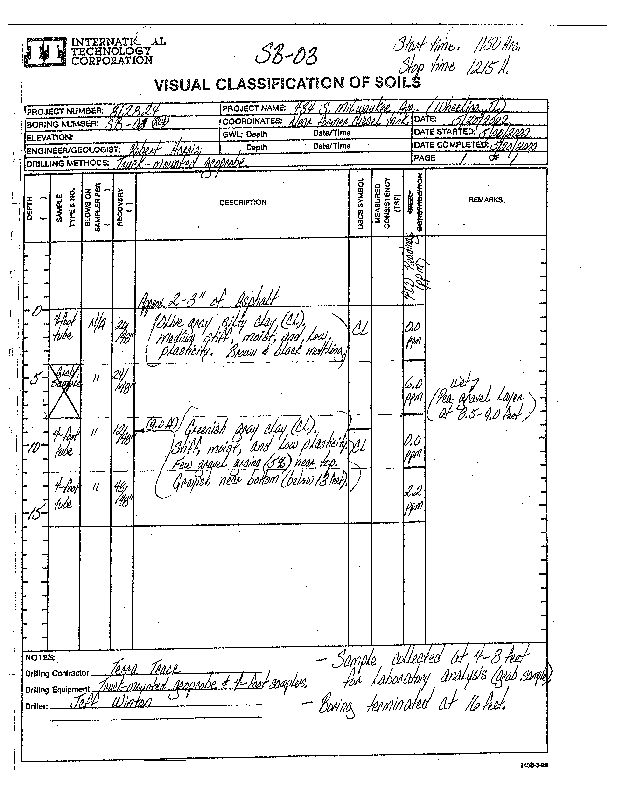 INTERNATIONAL
TECHNOLOGY
CORPORATION
SB-03
Start time: 1150 Hrs.
Stop time 1215 H.
VISUAL CLASSIFICATION OF SOILS
PROJECT NUMBER:
PROJECT NAME: 484 S. Milwaukee Ave. (Wheeling, IL)
BORING NUMBER: SB-03
COORDINATES: Near Former Diesel Tank
DATE: 5/20/2002
ELEVATION:
GWL: Depth Date/Time
DATE STARTED: 5/20/2002
ENGINEER/GEOLOGIST: Robert
Depth Date/Time
DATE COMPLETED: 5/20/2002
DRILLING METHODS: Truck-mounted geoprobe
PAGE 1 of 1
DEPTH ( )
SAMPLE TYPE & NO.
BLOWS ON SAMPLER PER ( )
RECOVERY ( )
DESCRIPTION
USCS SYMBOL
MEASURED CONSISTENCY (TSF)
PID Readings (ppm)
REMARKS
Approx. 2-3" of Asphalt
0
4-foot tube N/A 24/48"
Olive gray silty clay (CL),
medium stiff, moist, and low
plasticity. Brown & black mottling
CL
0.0 ppm
5
Grab Sample " 24/48"
6.0 ppm
Wet,
(Pea gravel Layer
at 8.5-9.0 feet)
10
4-foot tube " 12/48"
(9.0 ft)
Greenish gray clay (CL).
Stiff, moist, and low plasticity.
Few gravel grains (5%) near top.
Grayish near bottom (below 13 feet).
CL
0.0 ppm
15
4-foot tube " 48"
2.2 ppm
NOTES:
Drilling Contractor Terra Trace
Drilling Equipment Truck-mounted geoprobe & 4-foot samplers
Driller: Jeff Winton
- Sample collected at 4-8 feet
for Laboratory analysis (grab sample)
- Boring terminated at 16 feet.